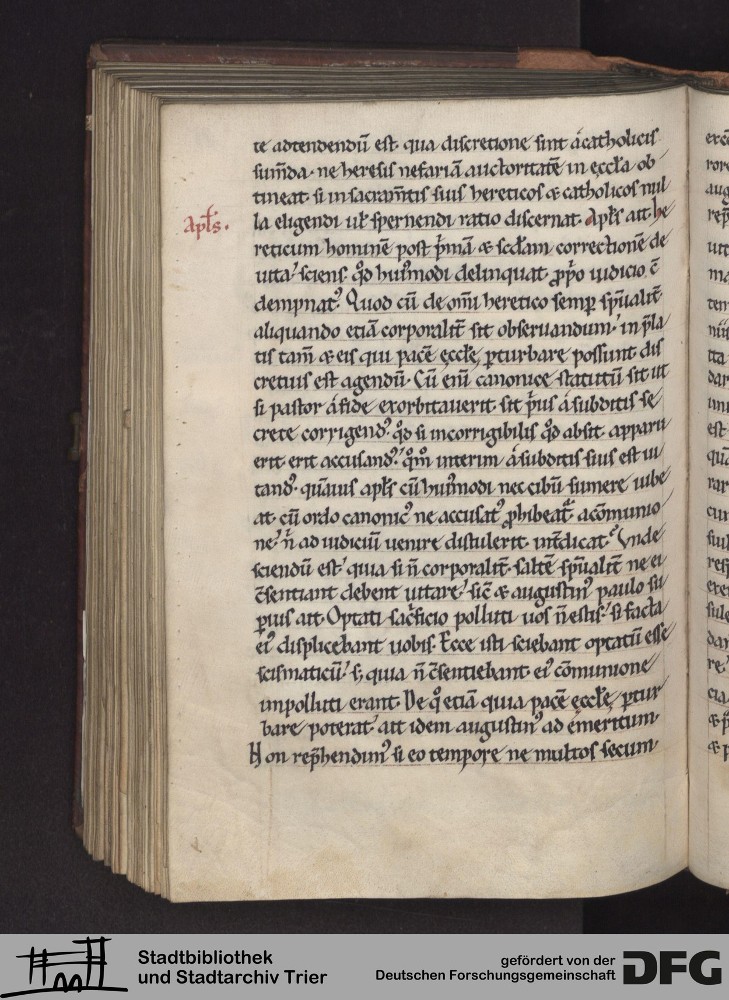 te adtendendū est qua discretione sint a catholicis
sum̄da. ne heresis nefariā auctoritatē in ęccła ob
tineat. si in sacram̄tis suis hereticos & catholicos nul
la eligendi uł spernendi ratio discernat. Apłs ait. he
Apłs.
reticum hominē post p̄mā & scđam correctionē de
uita. sciens qđ hui'modi delinquat ꝓprio iudicio ē
dempnat'. Quod cū de om̄i heretico semꝑ spūalit̄
aliquando etiā corporalit̄ sit obseruandum. in p̄la
tis tam̄ & eis qui pacē ęccłę ꝑturbare possunt dis
cretius est agendū. Cū enī canonice statutū sit ut
si pastor a fide exorbitauerit sit p̄us a subditis se
crete corrigend'. qđ si incorrigibilis qđ absit apparu
erit erit accusand'. qm̄ interim a subditis suis est ui
tand'. quāuis apłs cū hui'modi nec cibū sumere iube
at. cū ordo canonic' ne accusat' ꝓhibeat a cōmunio
ne. n̄ ad iudiciū uenire distulerit. int̄dicat. Vnde
sciendū est. quia si n̄ corporalit̄. saltē spūalit̄ ne ei
c̄sentiant debent uitare. sic̄ & augustin' paulo su
ꝑius ait. Optati sac̄ficio polluti uos n̄ estis. si facta
ei' displicebant uobis. Ecce isti sciebant optatū esse
scismaticū. s; quia n̄ c̄sentiebant ei' cōmunione
impolluti erant. De qo etiā quia pacē ęccłę ꝑtur
bare poterat. ait idem augustin' ad emeritum.
Non rep̄hendim' si eo tempore ne multos secum
Stadtbibliothek
und Stadtarchiv Trier
gefördert von der
Deutschen Forschungsgemeinschaft
DFG